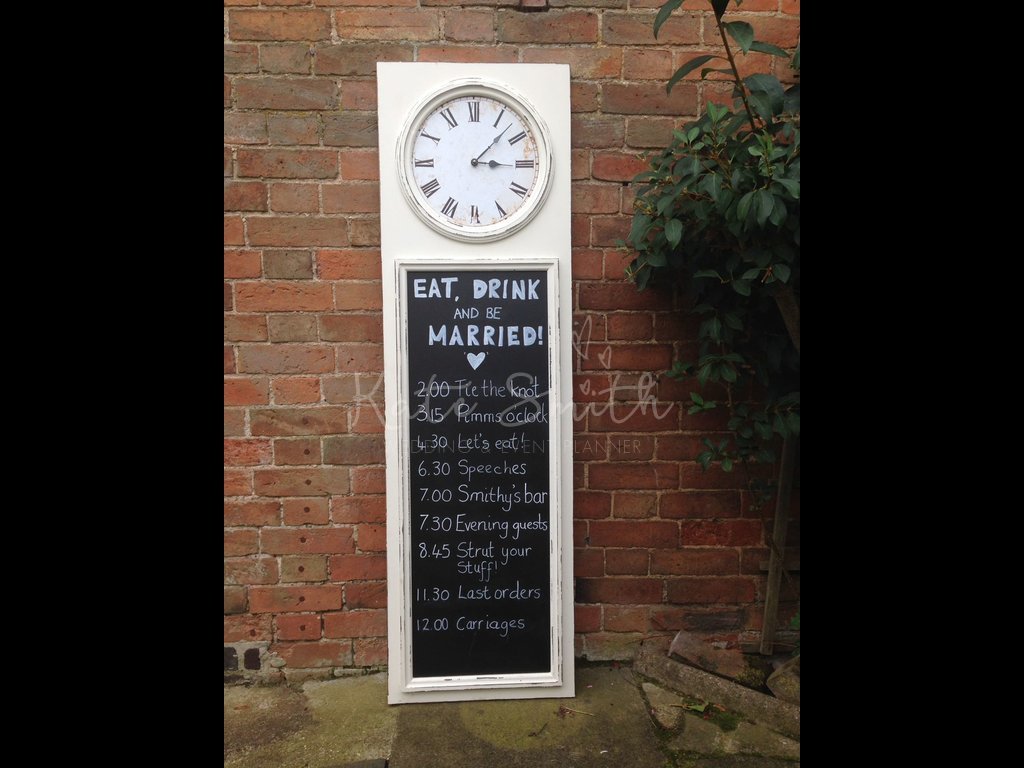 XII
I
II
III
IIII
V
VI
VII
VIII
IX
X
XI
EAT, DRINK
AND BE
MARRIED!
2.00 Tie the knot
3.15 Pimms o'clock
4.30 Let's eat!
6.30 Speeches
7.00 Smithy's bar
7.30 Evening guests
8.45 Strut your
Stuff!
11.30 Last orders
12.00 Carriages
Kate Smith
WEDDING & EVENT PLANNER